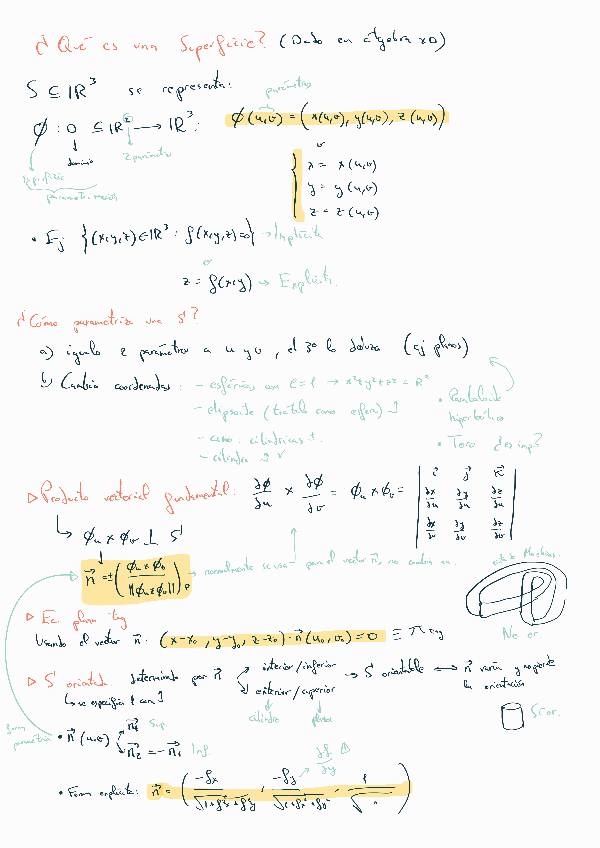 ¿Qué es una Superficie? (Dado en álgebra xD)
S ⊆ ℝ³ se representa:
parámetros
ϕ : D ⊆ ℝ² → ℝ³ : ϕ(u,v) = (x(u,v), y(u,v), z(u,v))
dominio
2 parámetros
superficie
o
x = x(u,v)
y = y(u,v)
z = z(u,v)
• Ej {(x,y,z) ∈ ℝ³ : f(x,y,z)=0} → Implícita
o
z = f(x,y) → Explícita.
¿Cómo parametriza una S?
a) igualo 2 parámetros a u y v, el 3º lo deduzco (ej planos)
b) Cambio coordenadas: - esféricas con ρ=1 → x²+y²+z² = R²
- elipsoide (tratalo como esfera)
- cono: cilíndricas
- cilindro
• Paraboloide hiperbólico
• Toro
▷ Producto vectorial fundamental: ∂ϕ/∂u × ∂ϕ/∂v = ϕu × ϕv = | i j k |
| ∂x/∂u ∂y/∂u ∂z/∂u |
| ∂x/∂v ∂y/∂v ∂z/∂v |
↳ ϕu × ϕv ⊥ S
n = ± (ϕu × ϕv / ||ϕu × ϕv||)p → normalmente se usa para el vector n, no cambia
Moebius.
No or
▷ Ec. plano tag
Usando el vector n. (x-x₀, y-y₀, z-z₀)·n(u₀,v₀)=0 ≡ π tg
▷ S orientada determinado por n interior/inferior
exterior/superior
→ S orientable ↔ n varía y no pierde la orientación
↳ se especifica
cilindro
plano
Sí or.
forma paramétrica
• n(u,v) n₁ Sup.
n₂ = -n₁ Inf.
∂f/∂y
• Forma explícita: n = (-fx/√(1+fx²+fy²), -fy/√(1+fx²+fy²), 1/√ " )